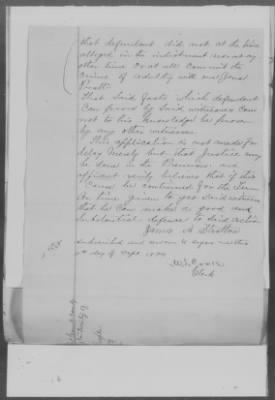 that defendant did not at the time
alleged in the indictment nor at any
other time or at all commit the
crime of adultry with one
That said facts which defendant
can prove by said witnesses can
not to his knowledge be proven
by any other witness
This application is not made for
delay merely but that Justice may
be done in the Premises and
affiant verily believes that if this
Cause be continued for the Term
or time given to get said witness
that he can make a good and
substantial defense to said action
James A
Subscribed and sworn to before me this
day of Sept
Clerk